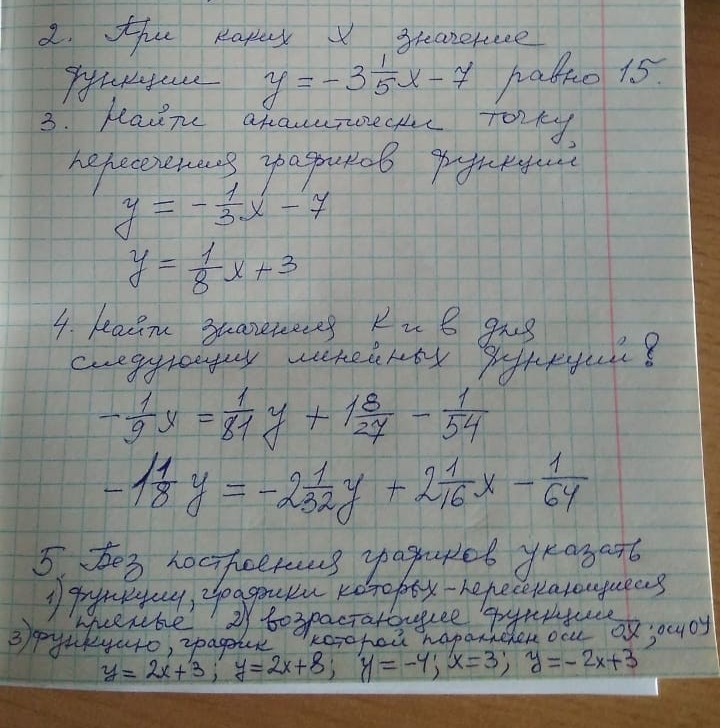 2. При каких x значение
функции y = -3 1/5 x - 7 равно 15.
3. Найти аналитически точку
пересечения графиков функций
y = - 1/3 x - 7
y = 1/8 x + 3
4. Найти значения к и в для
следующих линейных функций?
- 1/9 x = 1/81 y + 1 8/27 - 1/54
- 1 1/8 y = - 2 1/32 y + 2 1/16 x - 1/64
5. Без построения графиков указать
1) функции, графики которых - пересекающиеся
прямые 2) возрастающие функции
3) функцию, график которой параллелен оси ОХ; оси ОУ
y = 2x+3; y=2x+8; y=-4; x=3; y=-2x+3